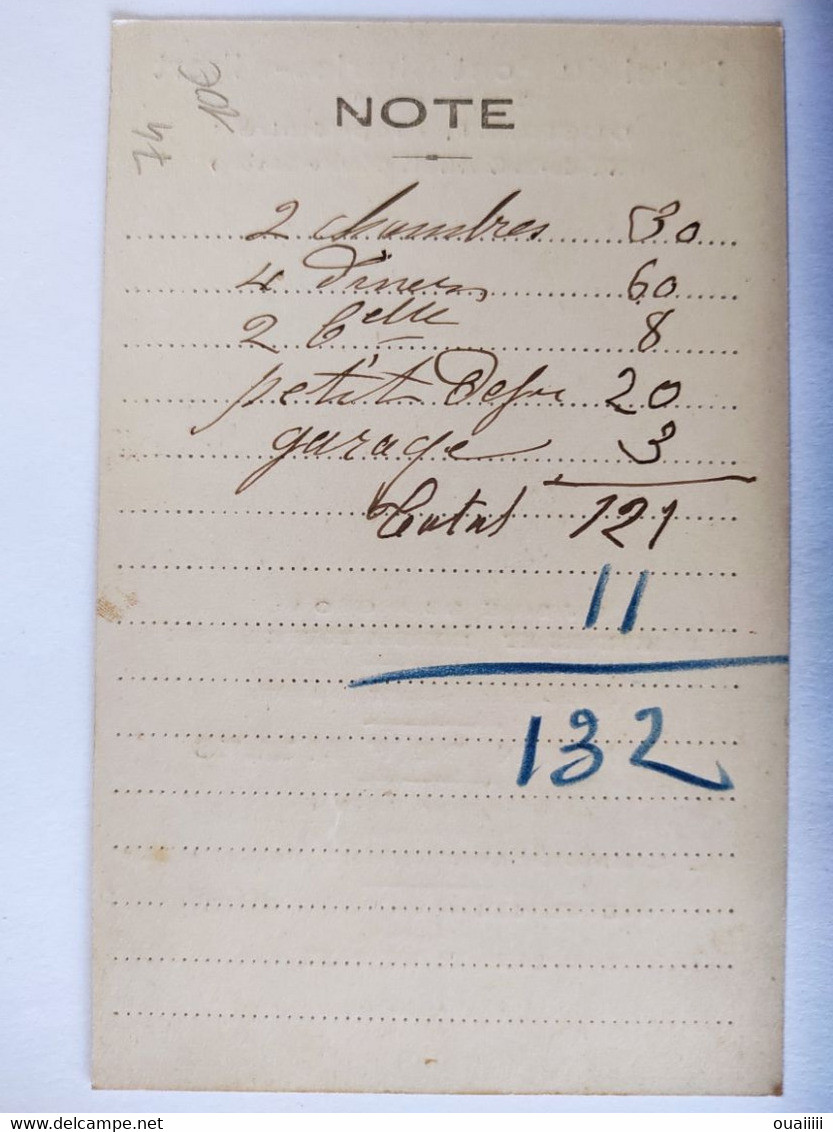 NOTE
74
10€
2 chambres 30
4 diners 60
2 Belle 8
petit Dejr 20
garage 3
Total 121
11
132
Delcampe.net
ouaiiiii